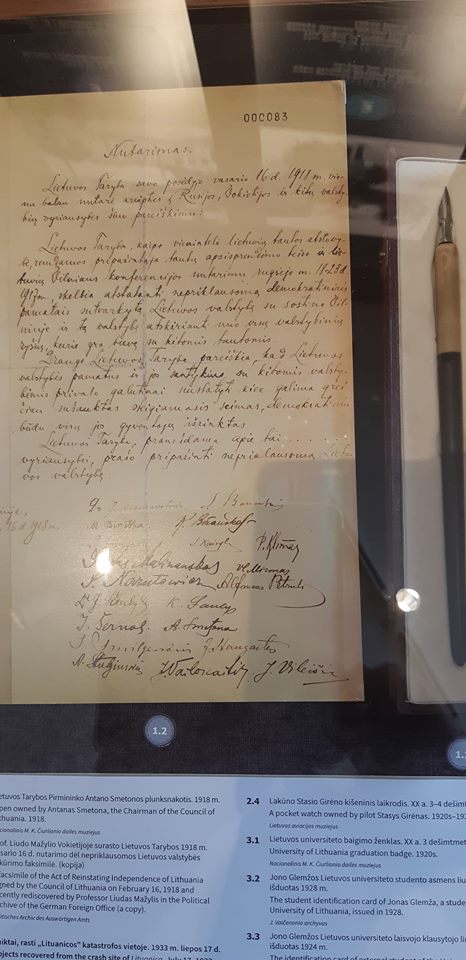 000083
Nutarimas.
Lietuvos Taryba savo posėdyje vasario 16 d. 1918 m. vie-
nu balsu nutarė kreiptis į Rusijos, Vokietijos ir kitų valsty-
bių vyriausybes šiuo pareiškimu:
Lietuvos Taryba, kaipo vienintelė lietuvių tautos atstovy-
bė, remdamos pripažintąja tautų apsisprendimo teise ir lie-
tuvių Vilniaus konferencijos nutarimu rugsėjo m. 18-23 d.
1917 m., skelbia atstatanti nepriklausomą demokratiniais
pamatais sutvarkytą Lietuvos valstybę su sostine Vil-
niuje ir tą valstybę atskirianti nuo visų valstybinių
ryšių, kurie yra buvę su kitomis tautomis.
Drauge Lietuvos Taryba pareiškia, kad Lietuvos
valstybės pamatus ir jos santykius su kitomis valsty-
bėmis privalo galutinai nustatyti kiek galima grei-
čiau sušauktas steigiamasis seimas, demokratiniu
būdu visų jos gyventojų išrinktas.
Lietuvos Taryba, pranešdama apie tai . . . . . .
vyriausybei, prašo pripažinti nepriklausomą Lietu-
vos valstybę.
16 d. 1918 m.
J. Basanavičius S. Banaitis
M. Biržiška K. Bizauskas
J. Kairys P. Klimas
Malinauskas Vl. Mironas
Narutowicz Alfonsas Petrulis
Dr J. Šaulys K. Šaulys
J. Šernas A. Smetona
J. Smilgevičius J. Staugaitis
A. Stulginskis J. Vailokaitis J. Vileišis
1.2
1.
etuvos Tarybos Pirmininko Antano Smetonos plunksnakotis. 1918 m.
pen owned by Antanas Smetona, the Chairman of the Council of
thuania. 1918.
acionalinis M. K. Čiurlionio dailės muziejus
of. Liudo Mažylio Vokietijoje surasto Lietuvos Tarybos 1918 m.
sario 16 d. nutarimo dėl nepriklausomos Lietuvos valstybės
kūrimo faksimilė. (kopija)
facsimile of the Act of Reinstating Independence of Lithuania
gned by the Council of Lithuania on February 16, 1918 and
cently rediscovered by Professor Liudas Mažylis in the Political
rchive of the German Foreign Office (a copy).
litisches Archiv des Auswärtigen Amts
aiktai, rasti „Lituanicos" katastrofos vietoje. 1933 m. liepos 17 d.
ojects recovered from the crash site of Lituanica. July 17, 1933
2.4 Lakūno Stasio Girėno kišeninis laikrodis. XX a. 3–4 dešimt
A pocket watch owned by pilot Stasys Girėnas. 1920s–193
Lietuvos aviacijos muziejus
3.1 Lietuvos universiteto baigimo ženklas. XX a. 3 dešimtmet
University of Lithuania graduation badge. 1920s.
Nacionalinis M. K. Čiurlionio dailės muziejus
3.2 Jono Glemžos Lietuvos universiteto studento asmens liu
išduotas 1928 m.
The student identification card of Jonas Glemža, a stude
University of Lithuania, issued in 1928.
J. Vaičenonio archyvas
3.3 Jono Glemžos Lietuvos universiteto laisvojo klausytojo li
išduotas 1924 m.
The identification card of external student of the